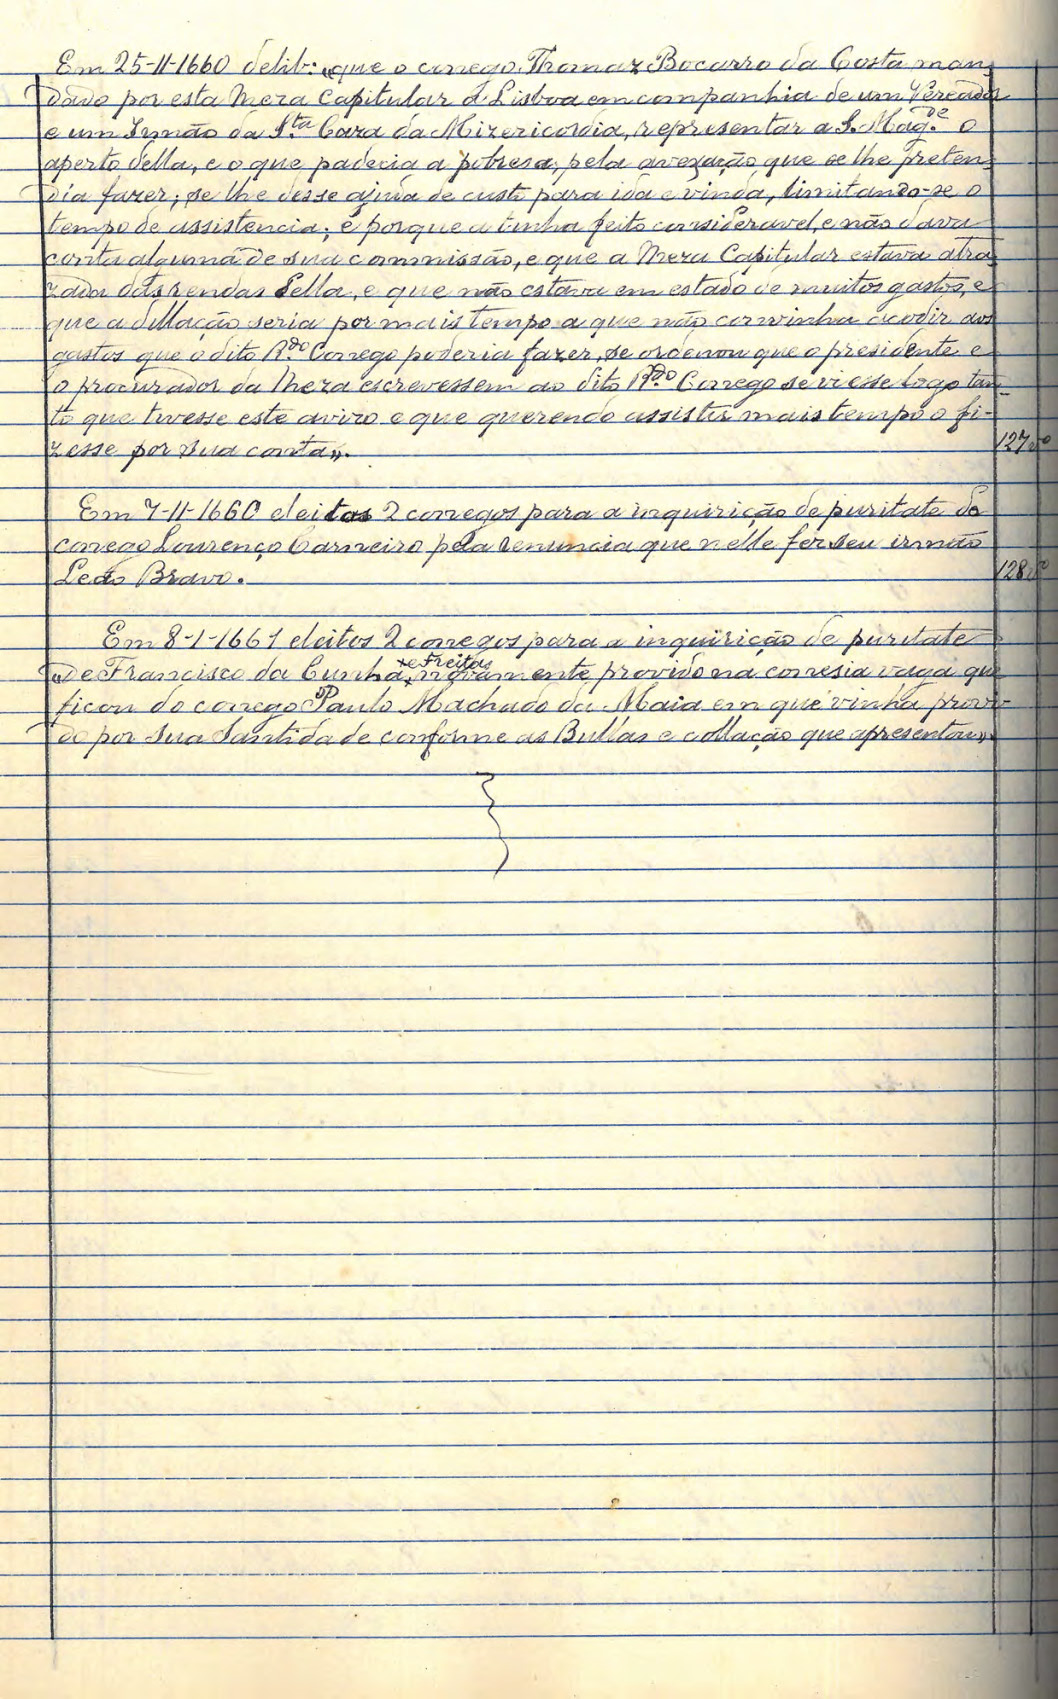 Em 25-11-1660 delib: «que o conego Thomaz Bocarro da Costa man-
dado por esta Meza Capitular á Lisboa em companhia de um Vereador
e um Irmão da S.ta Caza da Mizericordia, representar a S. Mag.de o
aperto della, e o que padecia a pobresa, pela avexação que se lhe preten-
dia fazer; se lhe desse ajuda de custo para ida e vinda, limitando-se o
tempo de assistencia; e porque a tinha feito consideravel, e não dava
conta alguma de sua commissão, e que a Meza Capitular estava atra-
zada das rendas della, e que não estava em estado de muitos gastos, e
que a dillação seria por mais tempo a que não convinha acodir aos
gastos que o dito R.do Conego poderia fazer, se ordenou que o presidente e
o procurador da Meza escrevessem ao dito R.do Conego se viesse logo tan-
to que tivesse este avizo e que querendo assistir mais tempo o fi-
zesse por sua conta».
127vo
Em 7-11-1660 eleitos 2 conegos para a inquirição de puritate do
conego Lourenço Carneiro pela renuncia que nelle fez seu irmão
Leão Bravo.
128vo
Em 8-1-1661 eleitos 2 conegos para a inquirição de puritate
«de Francisco da Cunha de Freitas, novamente provido na conesia vaga que
ficou do conego Paulo Machado da Maia em que vinha provi-
do por Sua Santidade conforme as Bullas e collação que apresentou».